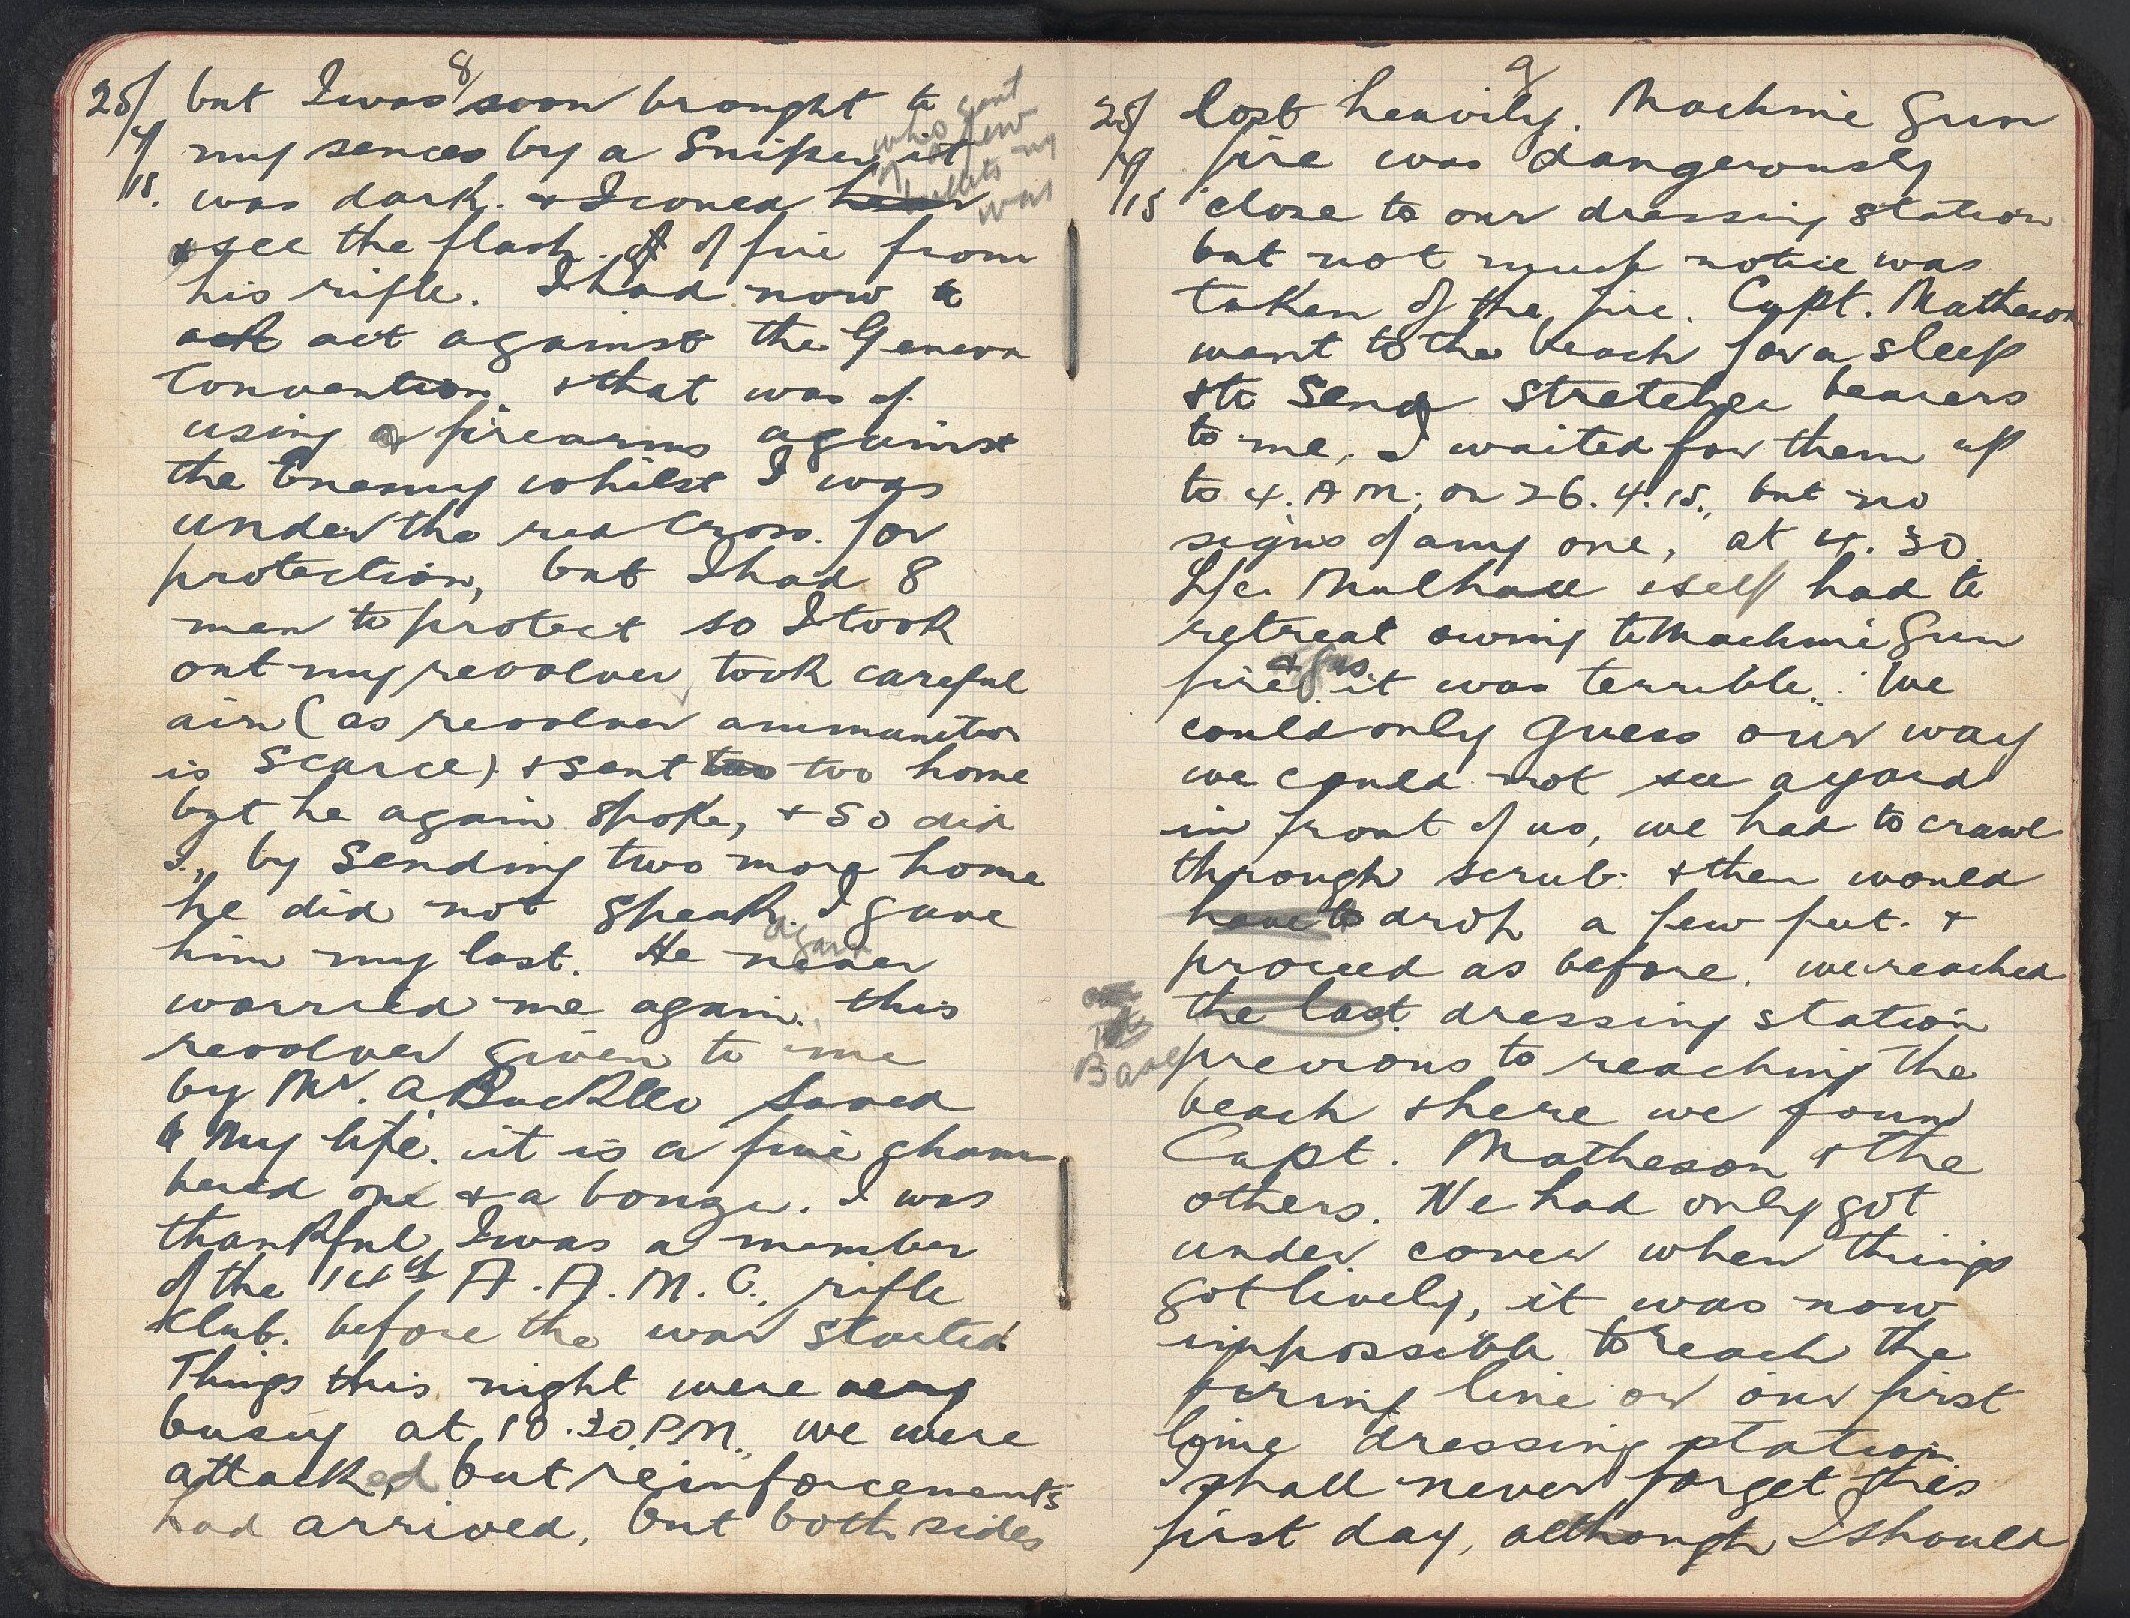 8
25/4/15. but I was soon brought to
my sences by a Sniper, it
who sent
a few
bullets my
way
was dark. & I coued hear
& see the flash. of of fire from
his rifle. I had now to
act act against the Geneva
Convention & that was of
using a firearms against
the Enemy whilst I was
under the red Cross. for
protection, but I had 8
men to protect so I took
out my revolver took careful
aim (as revolver ammunition
is scarce) & sent two two home
but he again spoke, & so did
I., by sending two more home
he did not speak. I gave
again
him my last. He never
worried me again. this
revolver given to me
by Mr. A. Bucklle saved
to My life. it is a five cham
bered one & a bonza. I was
thankful I was a member
of the 14th A.A.M.C. rifle
Club. before the war started.
Things this night were very
busy at 10.30.P.M., we were
attacked but reinforcements
had arrived, but both sides
9
25/4/15 lost heavily. Machine Gun
fire was dangerously
close to our dressing station
but not much notice was
taken of the fire. Capt. Matheson
went to the beach for a sleep
& to send stretcher bearers
to me, I waited for them up
to 4. A M; on 26.4.15., but no
signs of any one, at 4.30.
L/c. Mulhall & self had to
retreat owing to Machine Gun
fire. it was terrible. We
could only guess our way
we could not see a yard
in front of us, we had to crawl
through scrub. & then would
have to drop a few feet. &
proceed as before. we reached
the last. dressing station
Base
previous to reaching the
beach & here we found
Capt. Matheson & the
others. We had only got
under cover when things
got lively, it was now
impossible to reach the
firing line or our first
line dressing station.
I shall never forget this
first day, although I should